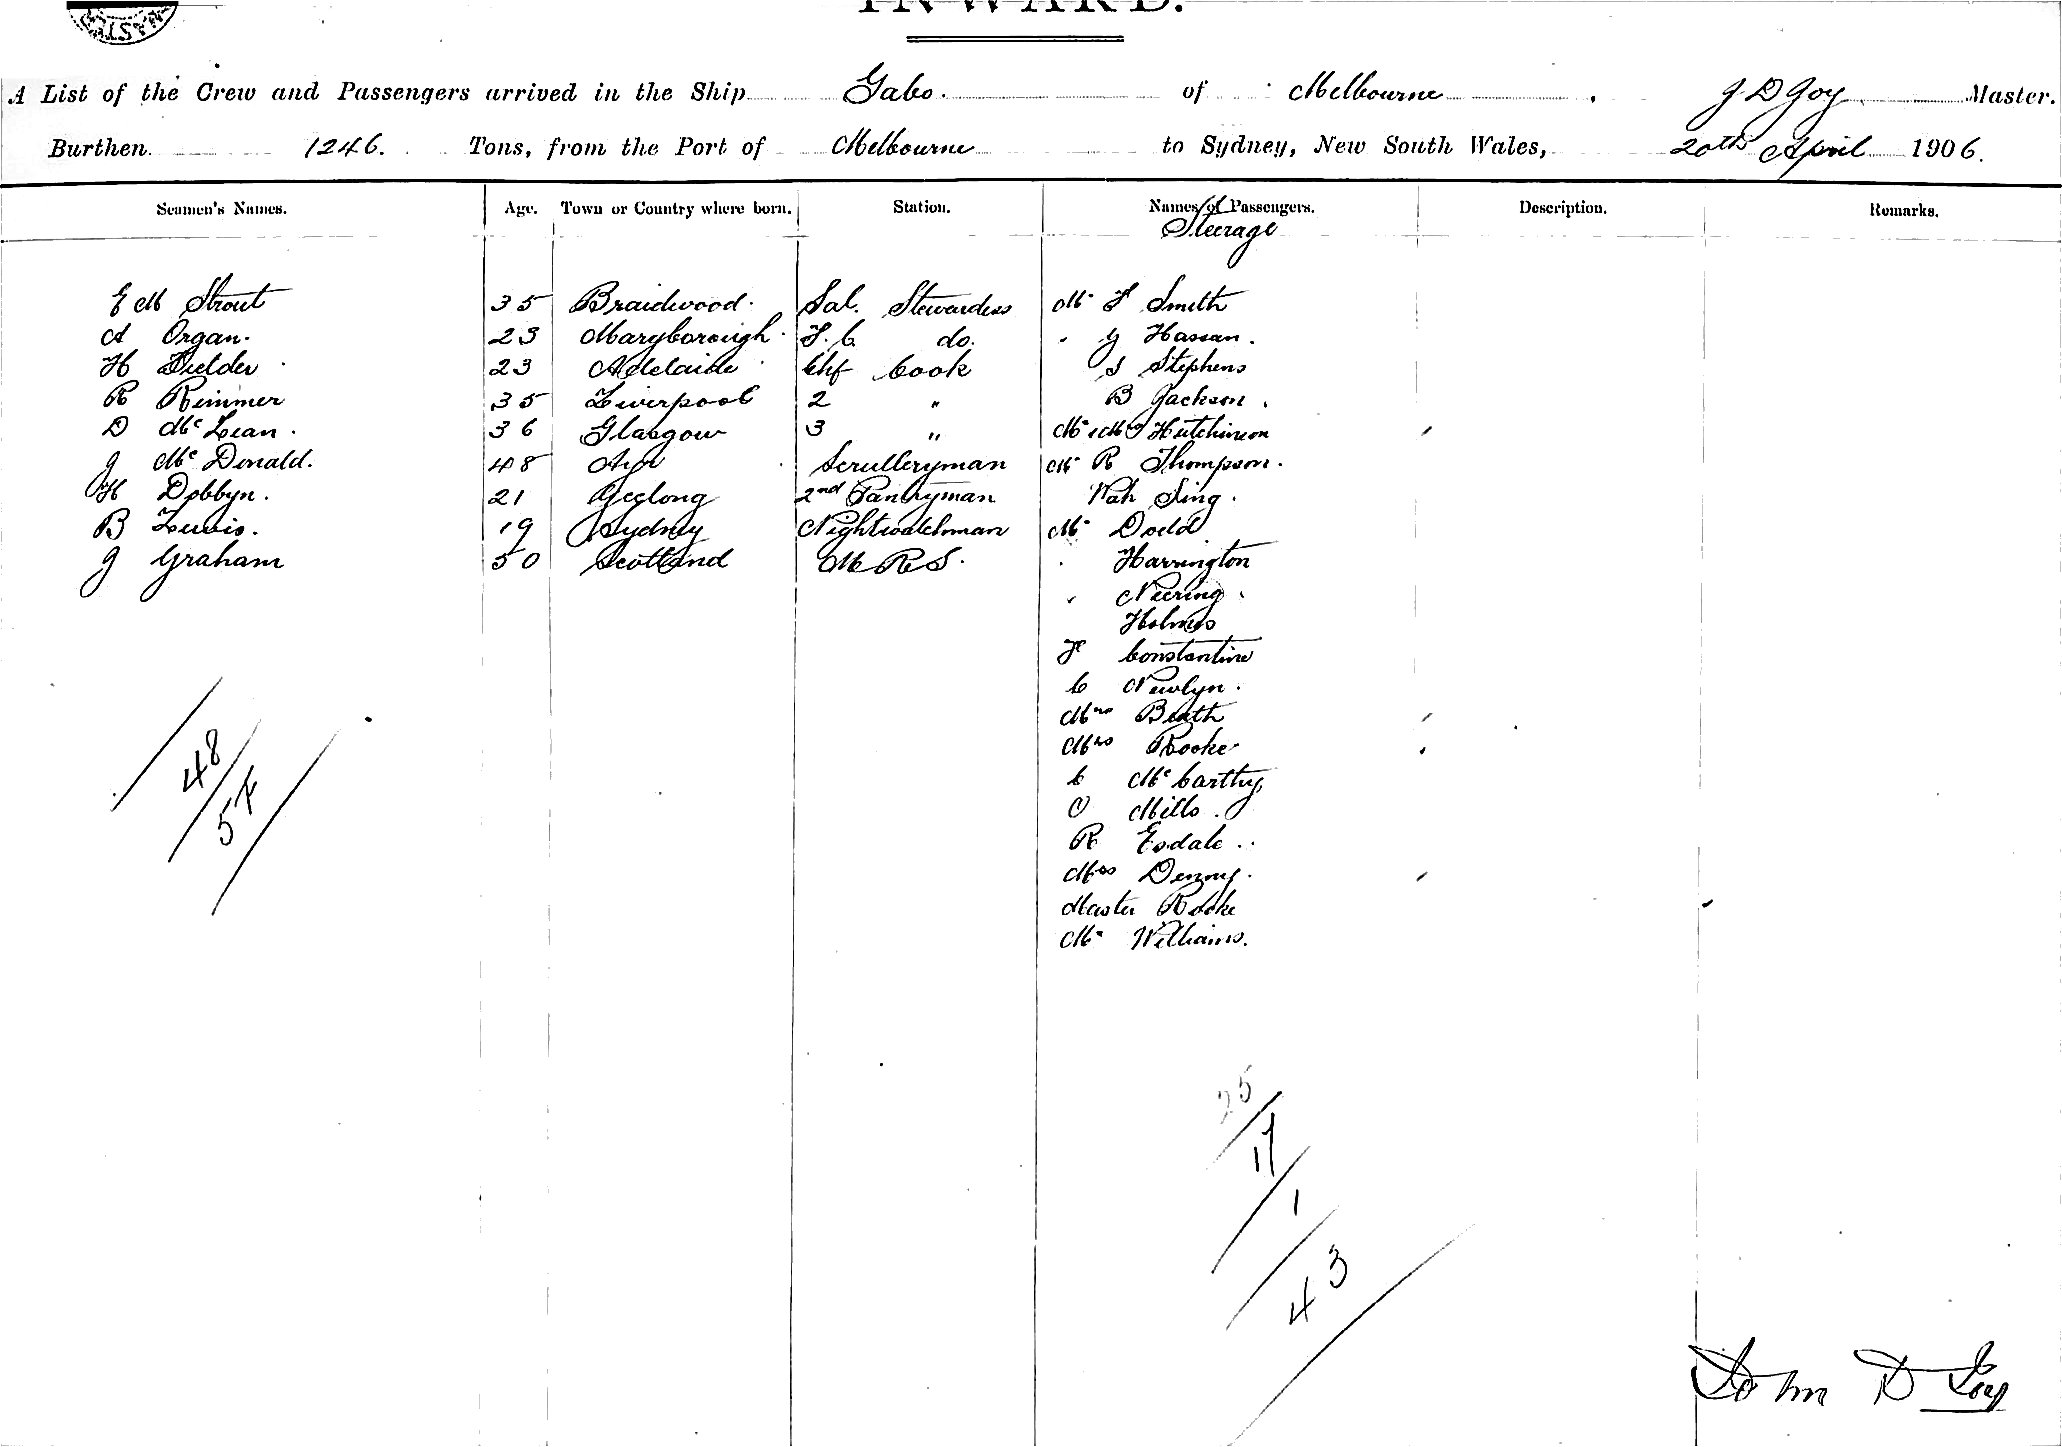 INWARD.
A List of the Crew and Passengers arrived in the Ship Gabo. of Melbourne J D Joy Master.
Burthen 1246. Tons, from the Port of Melbourne to Sydney, New South Wales, 20th April 1906.
Seamen's Names. Age. Town or Country where born. Station. Names of Passengers. Description. Remarks.
Steerage
E M Strout 35 Braidwood. Sal. Stewardess Mr F Smith
A Organ. 23 Maryborough. F. C do. " J Hassan.
H Fielder 23 Adelaide Chf Cook S Stephens
R Rimmer 35 Liverpool 2 " B Jackson.
D McLean. 36 Glasgow 3 " Mr & Mrs Hutchinson
J McDonald. 48 Ayr Scrulleryman Mr R Thompson.
H Dobbyn. 21 Geelong 2nd Pantryman Wah Sing.
B Lewis. 19 Sydney Nightwatchman Mr Dodd
J Graham 50 Scotland M R S. " Harrington
" Neering.
Holmes
F Constantine
C Newlyn.
Mrs Beath
Mrs Rooke
C McCarthy
O Mills.
R Esdale..
Mrs Denny.
Master Rooke
Mr Williams.
48
57
25
17
1
43
John D Joy